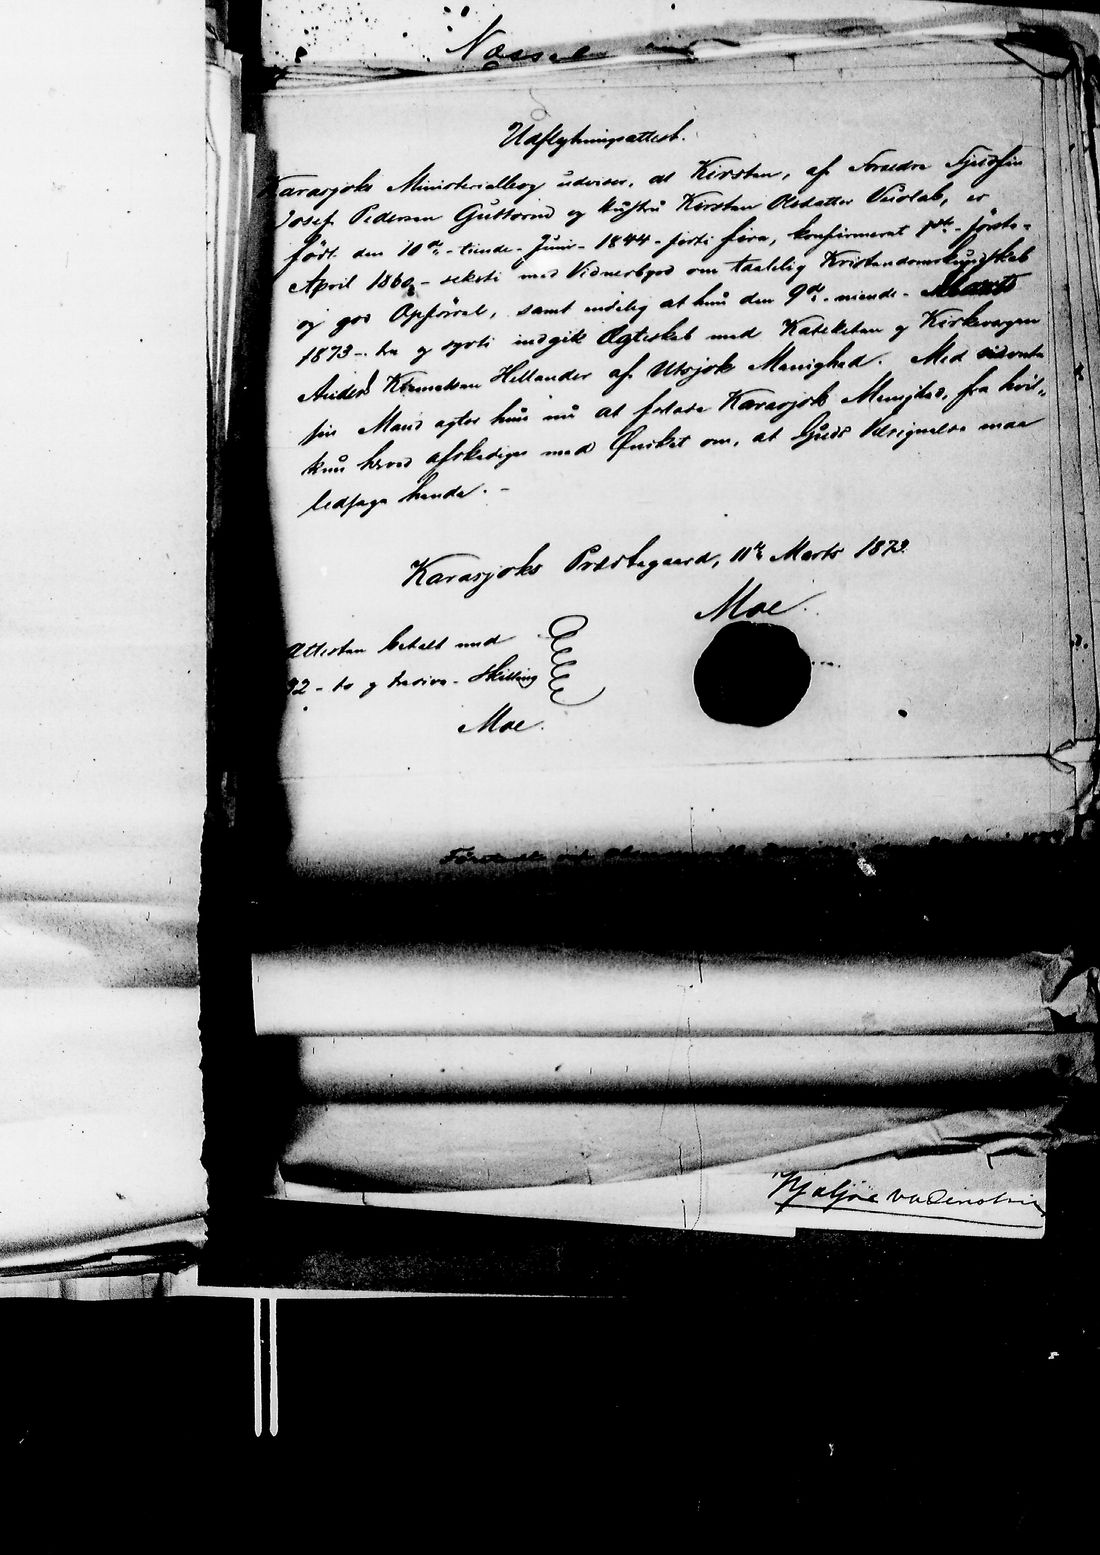 Udflytningsattest.
Karasjoks Ministerialbog udviser, at Kirsten, af Forældre Fjeldfin
Josef Pedersen Guttorm og Hustru Kirsten Olsdatter Vuolab, er
født den 10de - tiende - Juni - 1844 - forti fire, konfirmeret 1ste - første -
April 1860 - seksti med Vidnesbyrd om taalelig Kristendomskundskab
og god Opførsel, samt endelig at hun den 9de - niende - Marts
1873 - tre og sytti indgik Ægteskab med Kateketen og Kirkesangeren
Anders Hellander af Utsjok Menighed. Med
sin Mand agter hun nu at forlade Karasjok Menighed, fra hvil-
kun herved afskediges med Ønsket om, at Guds Velsignelse maa
ledsage hende. -
Karasjoks Præstegaard, 11te Marts 1873
Moe.
Attesten betalt med
32 - to og tredive - Skilling
Moe.